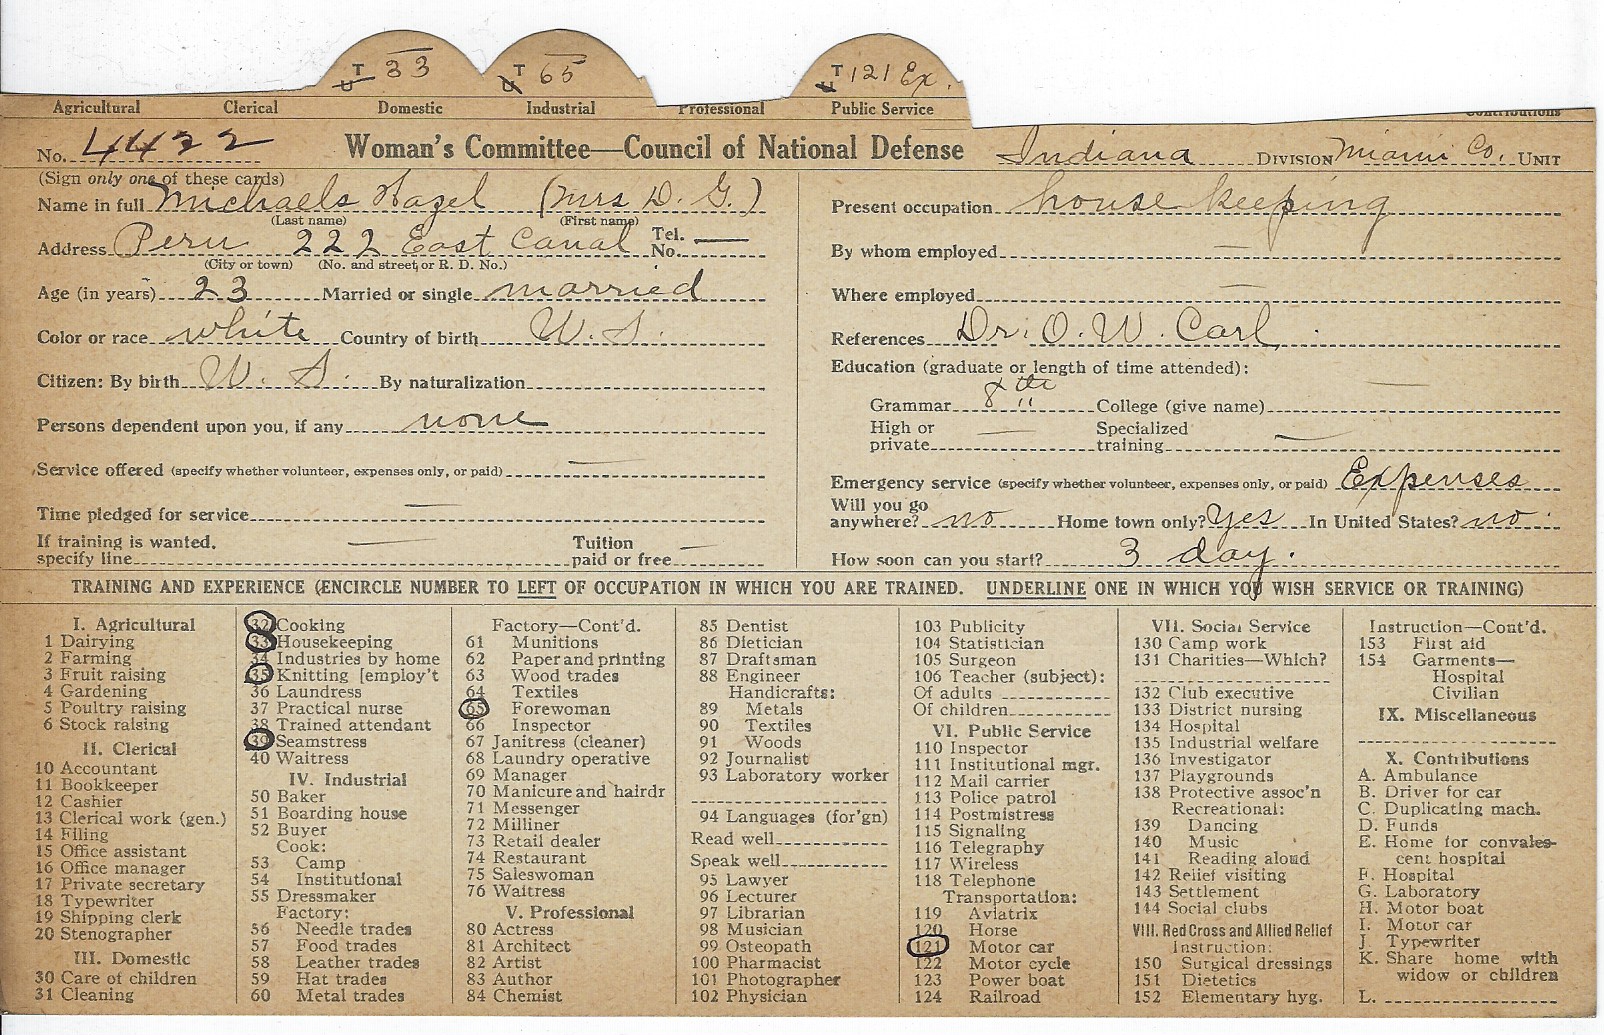 T 33 T 65 T 121 Ex.
U U U
Agricultural Clerical Domestic Industrial Professional Public Service Contributions
No. 4422 Woman's Committee—Council of National Defense Indiana DIVISION Miami Co. UNIT
(Sign only one of these cards)
Name in full Michaels Hazel (Mrs D. G.)
(Last name) (First name)
Address Peru 222 East Canal Tel. No. —
(City or town) (No. and street or R. D. No.)
Age (in years) 23 Married or single married
Color or race white Country of birth U. S.
Citizen: By birth U. S. By naturalization
Persons dependent upon you, if any none
Service offered (specify whether volunteer, expenses only, or paid) —
Time pledged for service —
If training is wanted, specify line — Tuition paid or free —
Present occupation house keeping
By whom employed —
Where employed —
References Dr. O. W. Carl
Education (graduate or length of time attended):
Grammar 8th College (give name) —
High or private — Specialized training —
Emergency service (specify whether volunteer, expenses only, or paid) Expenses
Will you go anywhere? no Home town only? Yes In United States? no
How soon can you start? 3 day.
TRAINING AND EXPERIENCE (ENCIRCLE NUMBER TO LEFT OF OCCUPATION IN WHICH YOU ARE TRAINED. UNDERLINE ONE IN WHICH YOU WISH SERVICE OR TRAINING)
I. Agricultural
1 Dairying
2 Farming
3 Fruit raising
4 Gardening
5 Poultry raising
6 Stock raising
II. Clerical
10 Accountant
11 Bookkeeper
12 Cashier
13 Clerical work (gen.)
14 Filing
15 Office assistant
16 Office manager
17 Private secretary
18 Typewriter
19 Shipping clerk
20 Stenographer
III. Domestic
30 Care of children
31 Cleaning
32 Cooking
33 Housekeeping
34 Industries by home
35 Knitting [employ't
36 Laundress
37 Practical nurse
38 Trained attendant
39 Seamstress
40 Waitress
IV. Industrial
50 Baker
51 Boarding house
52 Buyer
Cook:
53 Camp
54 Institutional
55 Dressmaker
Factory:
56 Needle trades
57 Food trades
58 Leather trades
59 Hat trades
60 Metal trades
Factory—Cont'd.
61 Munitions
62 Paper and printing
63 Wood trades
64 Textiles
65 Forewoman
66 Inspector
67 Janitress (cleaner)
68 Laundry operative
69 Manager
70 Manicure and hairdr
71 Messenger
72 Milliner
73 Retail dealer
74 Restaurant
75 Saleswoman
76 Waitress
V. Professional
80 Actress
81 Architect
82 Artist
83 Author
84 Chemist
85 Dentist
86 Dietician
87 Draftsman
88 Engineer
Handicrafts:
89 Metals
90 Textiles
91 Woods
92 Journalist
93 Laboratory worker
94 Languages (for'gn)
Read well
Speak well
95 Lawyer
96 Lecturer
97 Librarian
98 Musician
99 Osteopath
100 Pharmacist
101 Photographer
102 Physician
103 Publicity
104 Statistician
105 Surgeon
106 Teacher (subject):
Of adults
Of children
VI. Public Service
110 Inspector
111 Institutional mgr.
112 Mail carrier
113 Police patrol
114 Postmistress
115 Signaling
116 Telegraphy
117 Wireless
118 Telephone
Transportation:
119 Aviatrix
120 Horse
121 Motor car
122 Motor cycle
123 Power boat
124 Railroad
VII. Social Service
130 Camp work
131 Charities—Which?
132 Club executive
133 District nursing
134 Hospital
135 Industrial welfare
136 Investigator
137 Playgrounds
138 Protective assoc'n
Recreational:
139 Dancing
140 Music
141 Reading aloud
142 Relief visiting
143 Settlement
144 Social clubs
VIII. Red Cross and Allied Relief
Instruction:
150 Surgical dressings
151 Dietetics
152 Elementary hyg.
Instruction—Cont'd.
153 First aid
154 Garments—
Hospital
Civilian
IX. Miscellaneous
X. Contributions
A. Ambulance
B. Driver for car
C. Duplicating mach.
D. Funds
E. Home for convales-
cent hospital
F. Hospital
G. Laboratory
H. Motor boat
I. Motor car
J. Typewriter
K. Share home with
widow or children
L.